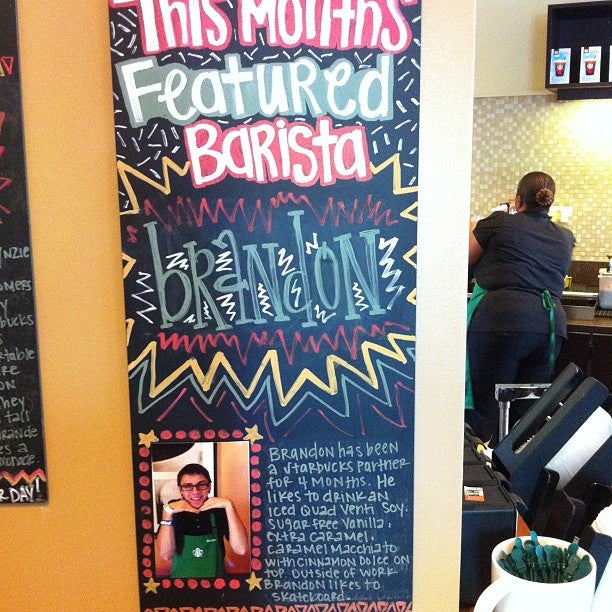 This Months
Featured
Barista
brandon
Brandon has been
a starbucks partner
for 4 months. He
likes to drink an
iced Quad Venti Soy,
Sugar free Vanilla,
extra caramel,
caramel macchiato
with cinnamon dolce on
top. outside of work
Brandon likes to
skateboard.
omers
y
bucks
rtable
re
on
they
tall
rande
es a
R DAY!